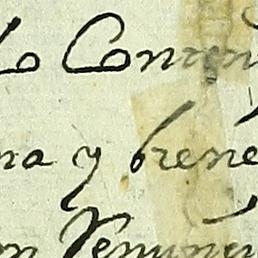 lo Conten
na y brene
on Renunci